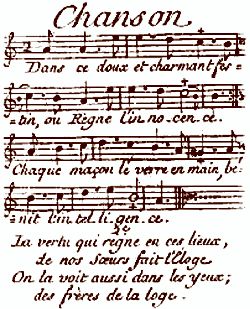 Chanson
Dans ce doux et charmant fes=
=tin, où Règne l'in_no_cen_ce.
Chaque maçon le verre en main, be=
=nit l'in tel li_gen_ce.
2e
La vertu qui règne en ces lieux,
de nos Sœurs fait l'Eloge
On la voit aussi dans les yeux;
des frères de la loge.